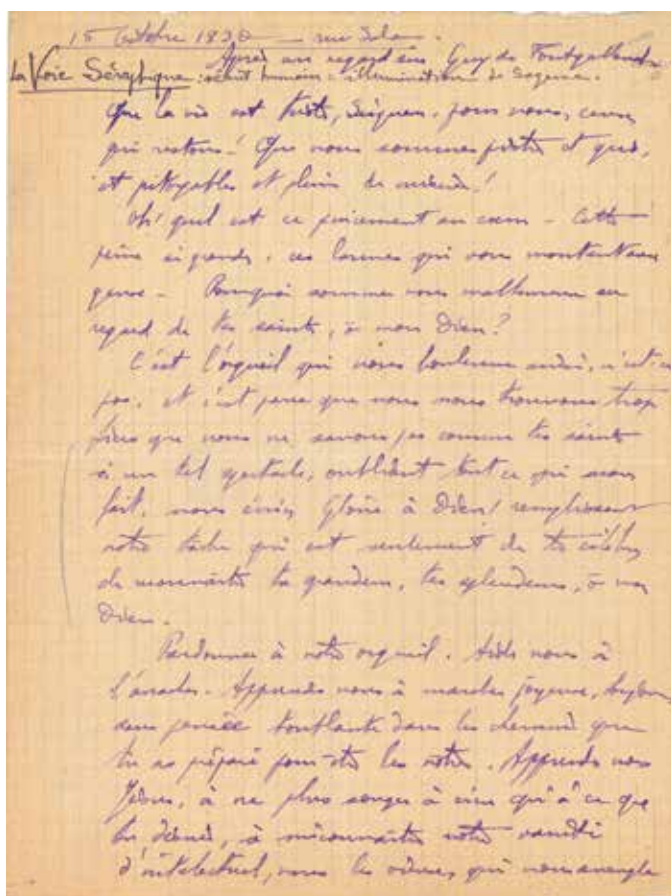 15 Octobre 1930 — rue
Après un regard sur Guy de Fontgalland
La Voie Séraphique : début humain = illumination de Sagesse.
Que la vie est triste, Seigneur, pour nous, ceux
qui restons ! Que nous sommes petits et
et pitoyables et pleins de misère !
Oh ! quel est ce pincement au coeur — Cette
peine si grande, ces larmes qui vous montent aux
— Pourquoi sommes nous malheureux au
regard de tes saints, ô mon Dieu ?
C'est l'orgueil qui nous bouleverse ainsi, n'est-ce
pas, et c'est parce que nous nous trouvons trop
que nous ne savons pas comme tes saints
à un tel spectacle, oubliant tout ce qui
fait, nous écrier Gloire à Dieu ! remplissant
notre tâche qui est seulement de te célébrer
de reconnaître ta grandeur, tes splendeurs, ô mon
Dieu.
Pardonnez à notre orgueil. Aide nous à
l'arracher. Apprends nous à marcher joyeux,
sans pensée troublante dans les chemins que
tu as préparés pour être les nôtres. Apprends nous
Jésus, à ne plus songer à rien qu'à ce que
tu désires, à méconnaître notre vanité
d'intellectuel, nous les vidures, qui nous aveugle